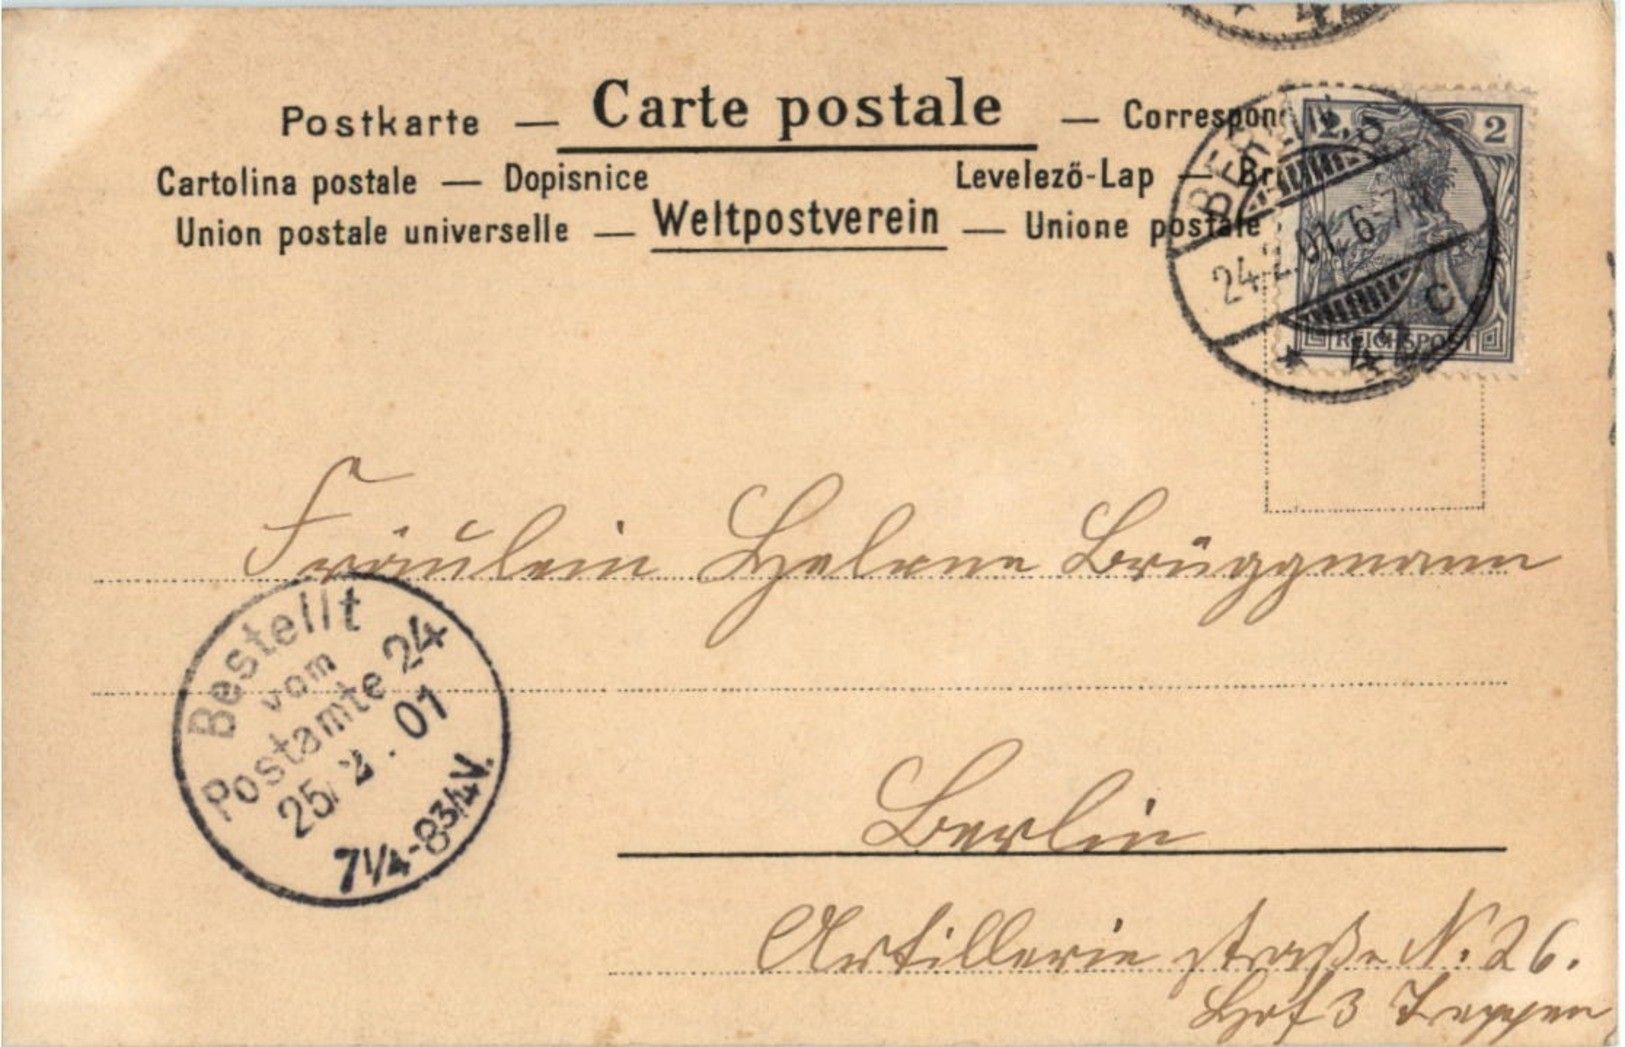 42
Postkarte — Carte postale — Correspon
Cartolina postale — Dopisnice Levelező-Lap — Br
Union postale universelle — Weltpostverein — Unione postale
2
BERLIN, S
24.2.01. 6-7
c
* 42
REICHSPOST
Fräulein Helene Brüggmann
Bestellt
vom
Postamte 24
25/2.01
7¼-8¾V.
Berlin
Artilleriestraße N. 26.
Hof 3 Treppen